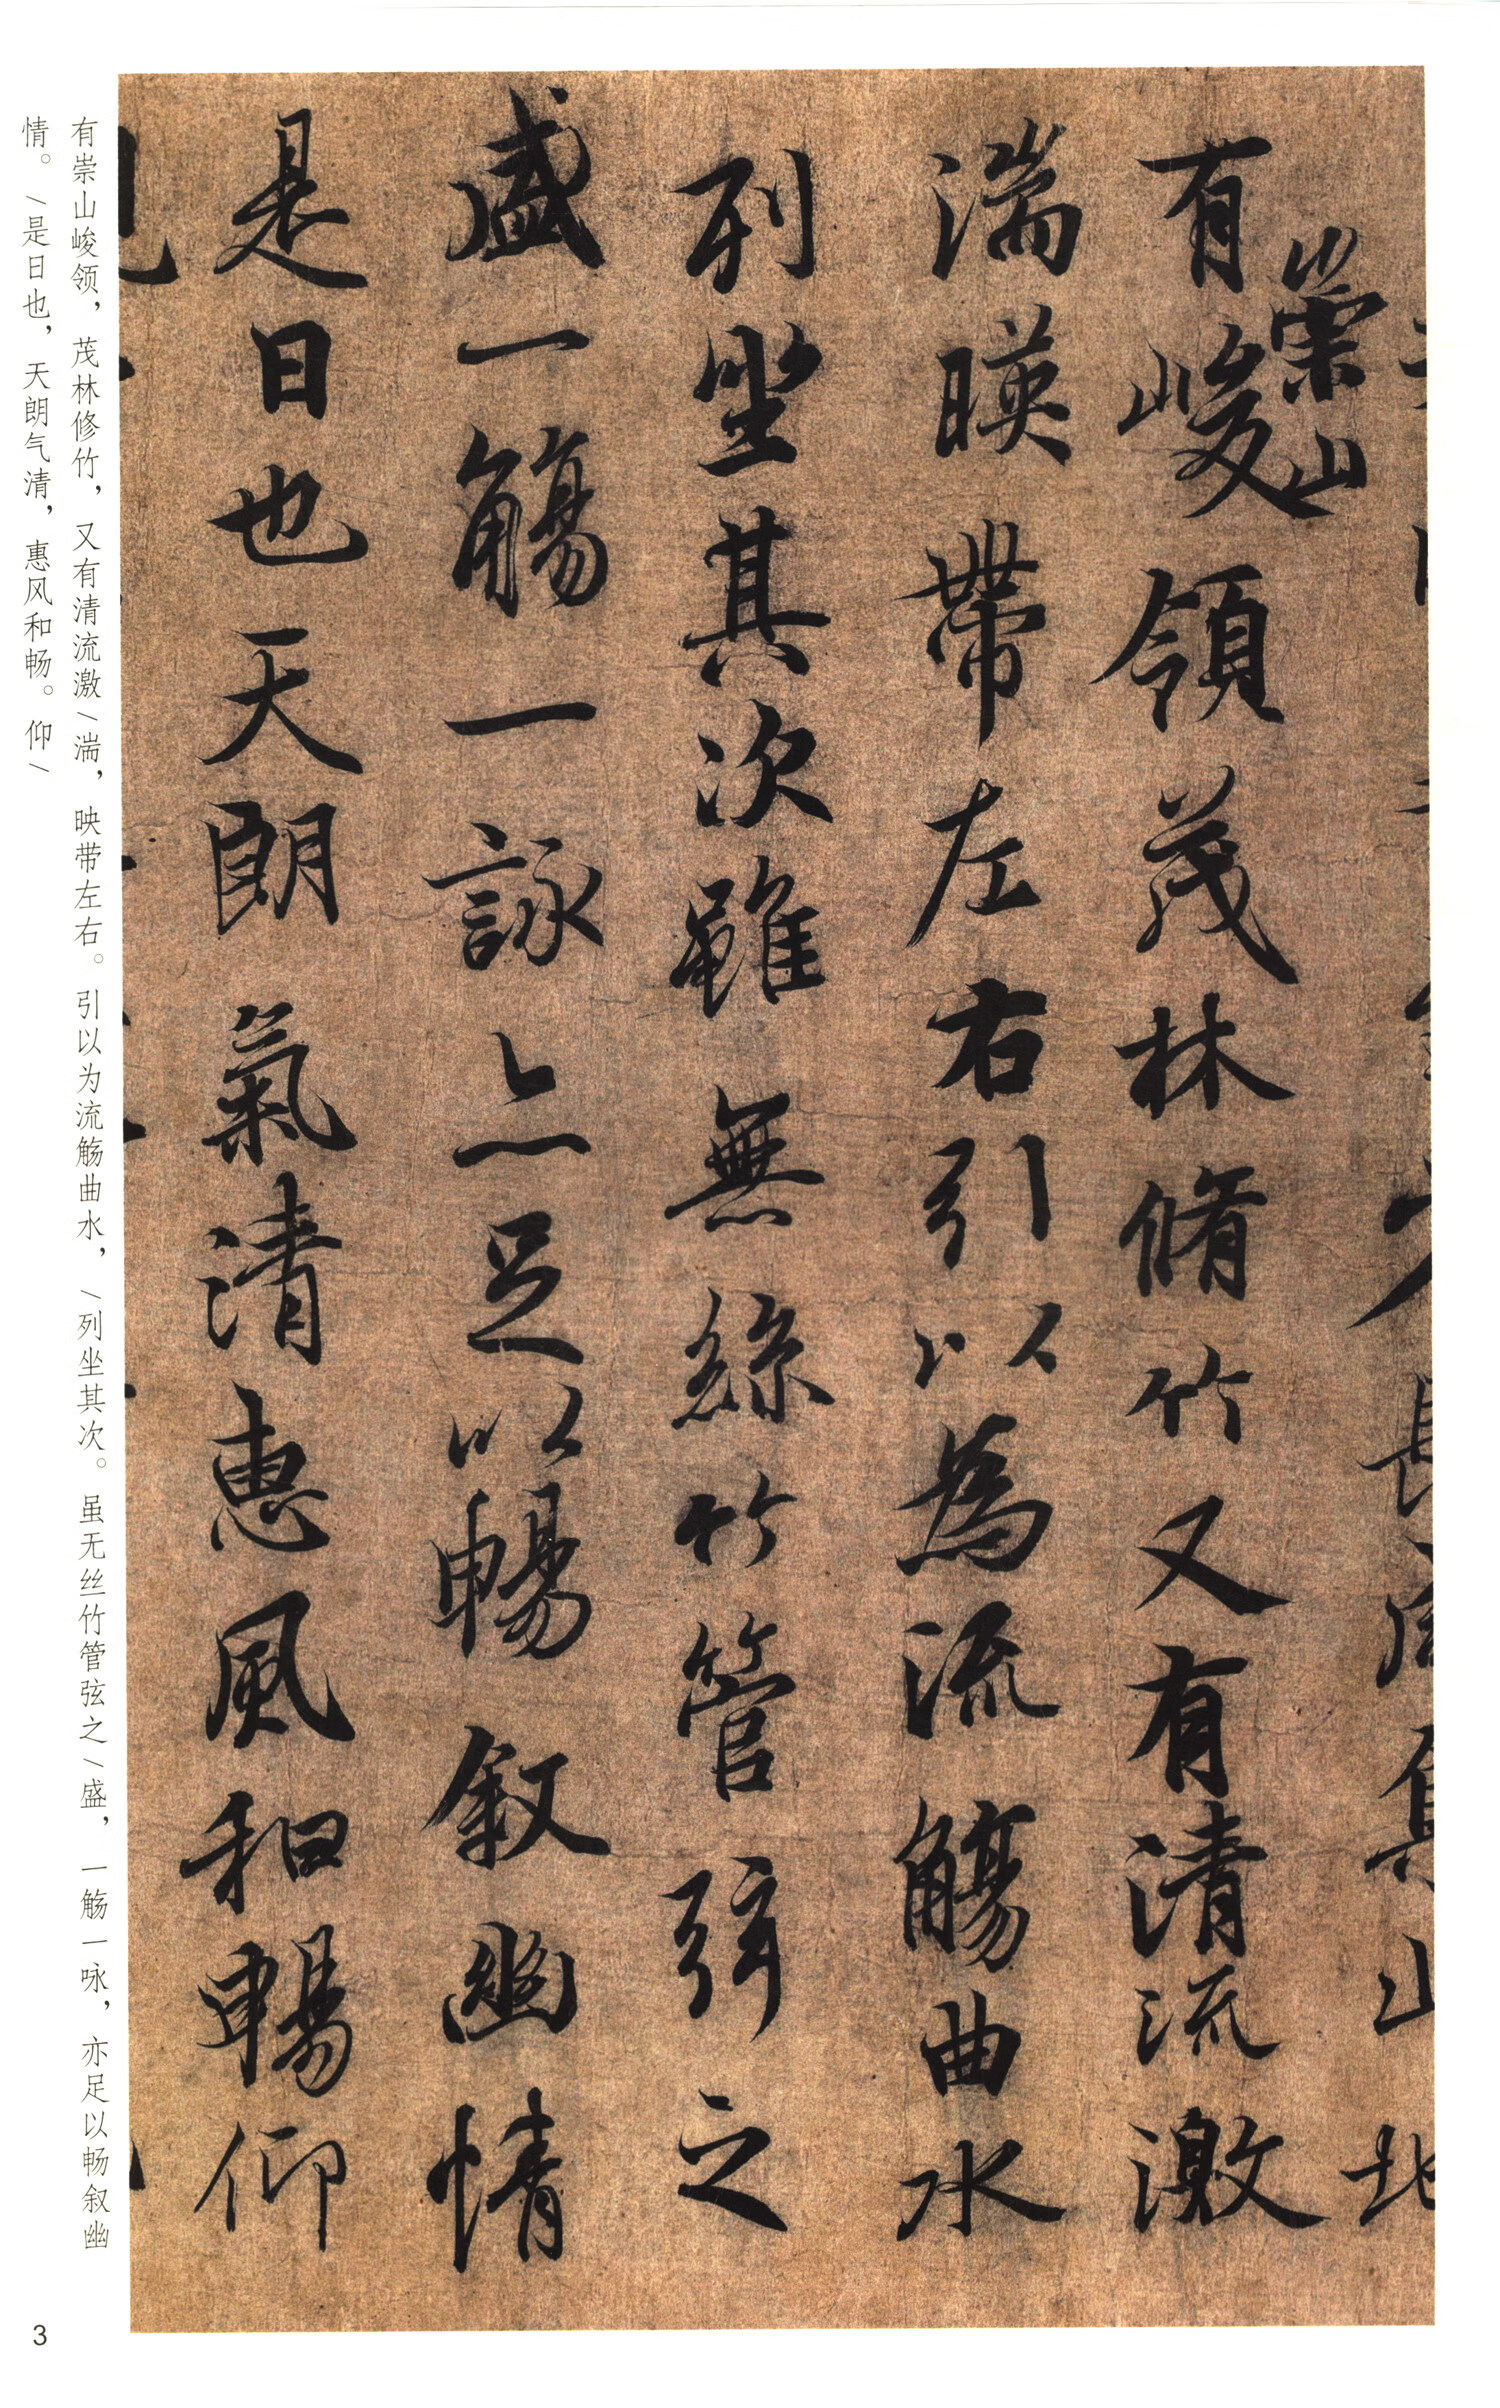 崇山
有峻領茂林脩竹又有清流激
湍暎帶左右引以為流觴曲水
列坐其次雖無絲竹管弦之
盛一觴一詠亦足以暢敘幽情
是日也天朗氣清惠風和暢仰
有崇山峻领，茂林修竹，又有清流激\湍，映带左右。引以为流觞曲水，\列坐其次。虽无丝竹管弦之\盛，一觞一咏，亦足以畅叙幽
情。\是日也，天朗气清，惠风和畅。仰\
3